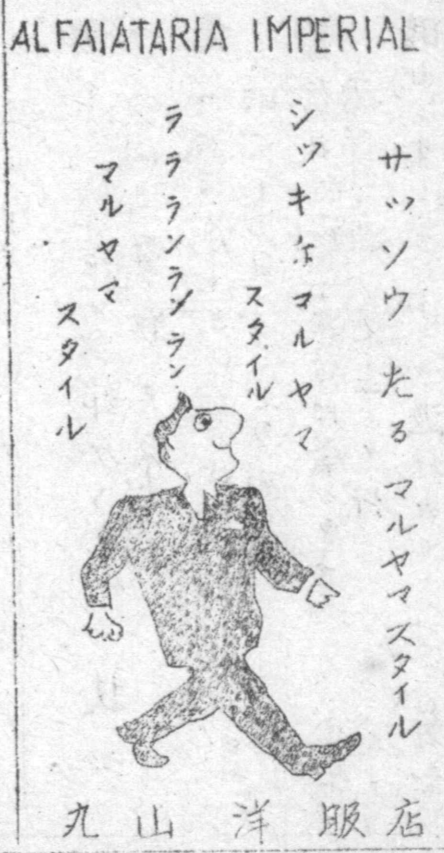 ALFAIATARIA IMPERIAL
サッソウ たる マルヤマスタイル
シツキな マルヤマ
スタイル
ララランランラン
マルヤマ
スタイル
丸山 洋服店